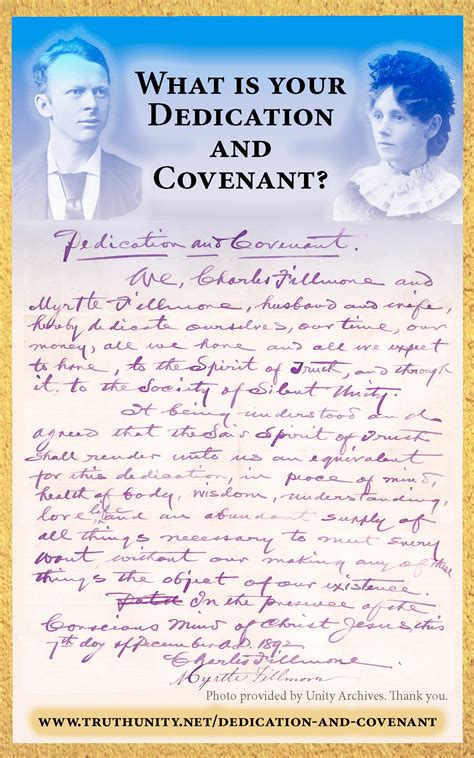 WHAT IS YOUR
DEDICATION
AND
COVENANT?
Dedication and Covenant.
We, Charles Fillmore and
Myrtle Fillmore, husband and wife,
hereby dedicate ourselves, our time, our
money, all we have and all we expect
to have, to the Spirit of Truth, and through
it, to the Society of Silent Unity.
It being understood and
agreed that the Said Spirit of Truth
shall render unto us an equivalent
for this dedication, in peace of mind,
health of body, wisdom, understanding,
love life and an abundant supply of
all things necessary to meet every
want, without our making any of these
things the object of our existence.
In the presence of the
Conscious Mind of Christ Jesus, this
7th day of December A.D. 1892.
Charles Fillmore
Myrtle Fillmore
Photo provided by Unity Archives. Thank you.
WWW.TRUTHUNITY.NET/DEDICATION-AND-COVENANT